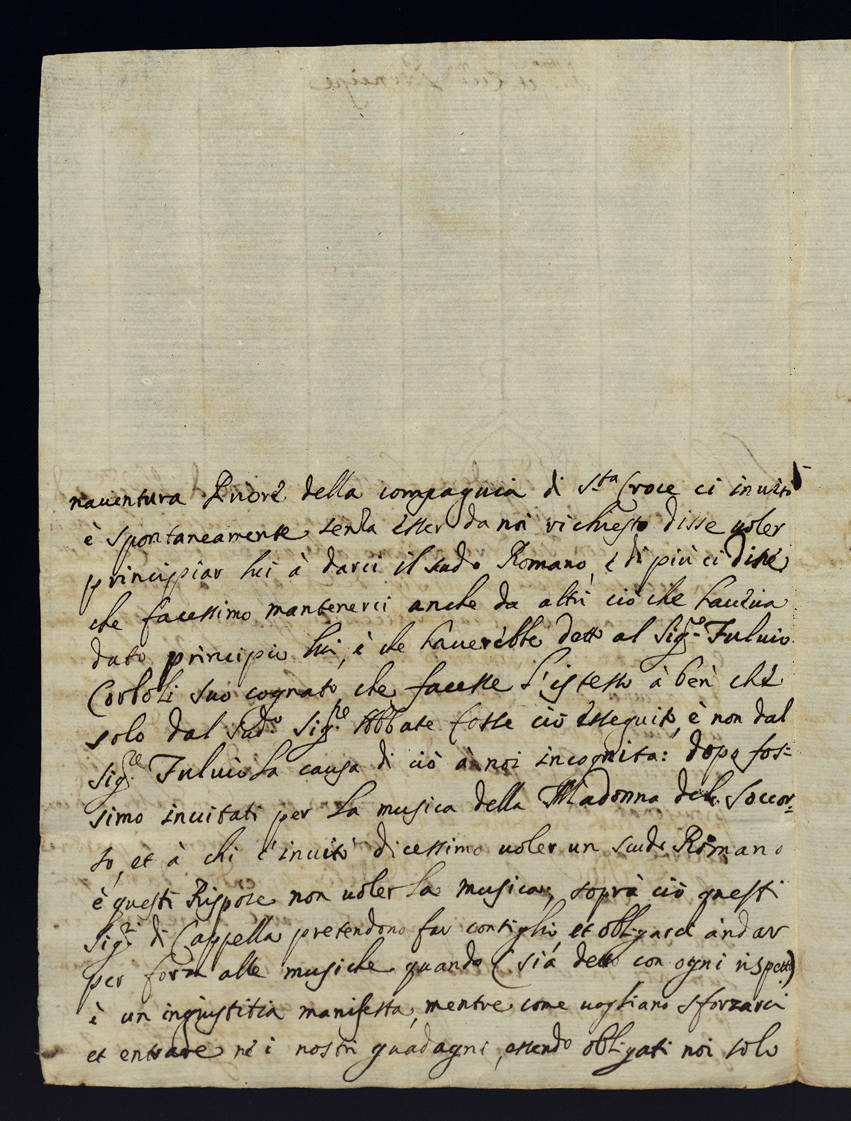 nauentura Priore della compagnia di Sta Croce ci inuitò
è spontaneamente senza esser da noi richiesto disse uoler
principiar lui à darci il scudo Romano, è di più ci disse,
che facessimo mantenerci anche da altri ciò che haueua
dato principio lui, è che hauerebbe detto al Sigre Fuluio
Corboli suo cognato che facesse l'istesso à ben che
solo dal Sudo Sigre Abbate fosse ciò esseguito, è non dal
Sigre Fuluio la causa di ciò à noi incognita: dopo fos-
simo inuitati per la musica della Madonna del Soccor-
so, et à chi c'inuitò dicessimo uoler un scudo Romano
è questi Rispose non uoler la musica, soprà ciò questi
Sigri di Cappella pretendono far consiglio, et obligarci andar
per forza alle musiche quando (sia detto con ogni rispetto)
è un ingiustitia manifesta, mentre come uogliano sforzarci
et entrare nè i nostri guadagni, essendo obligati noi solo